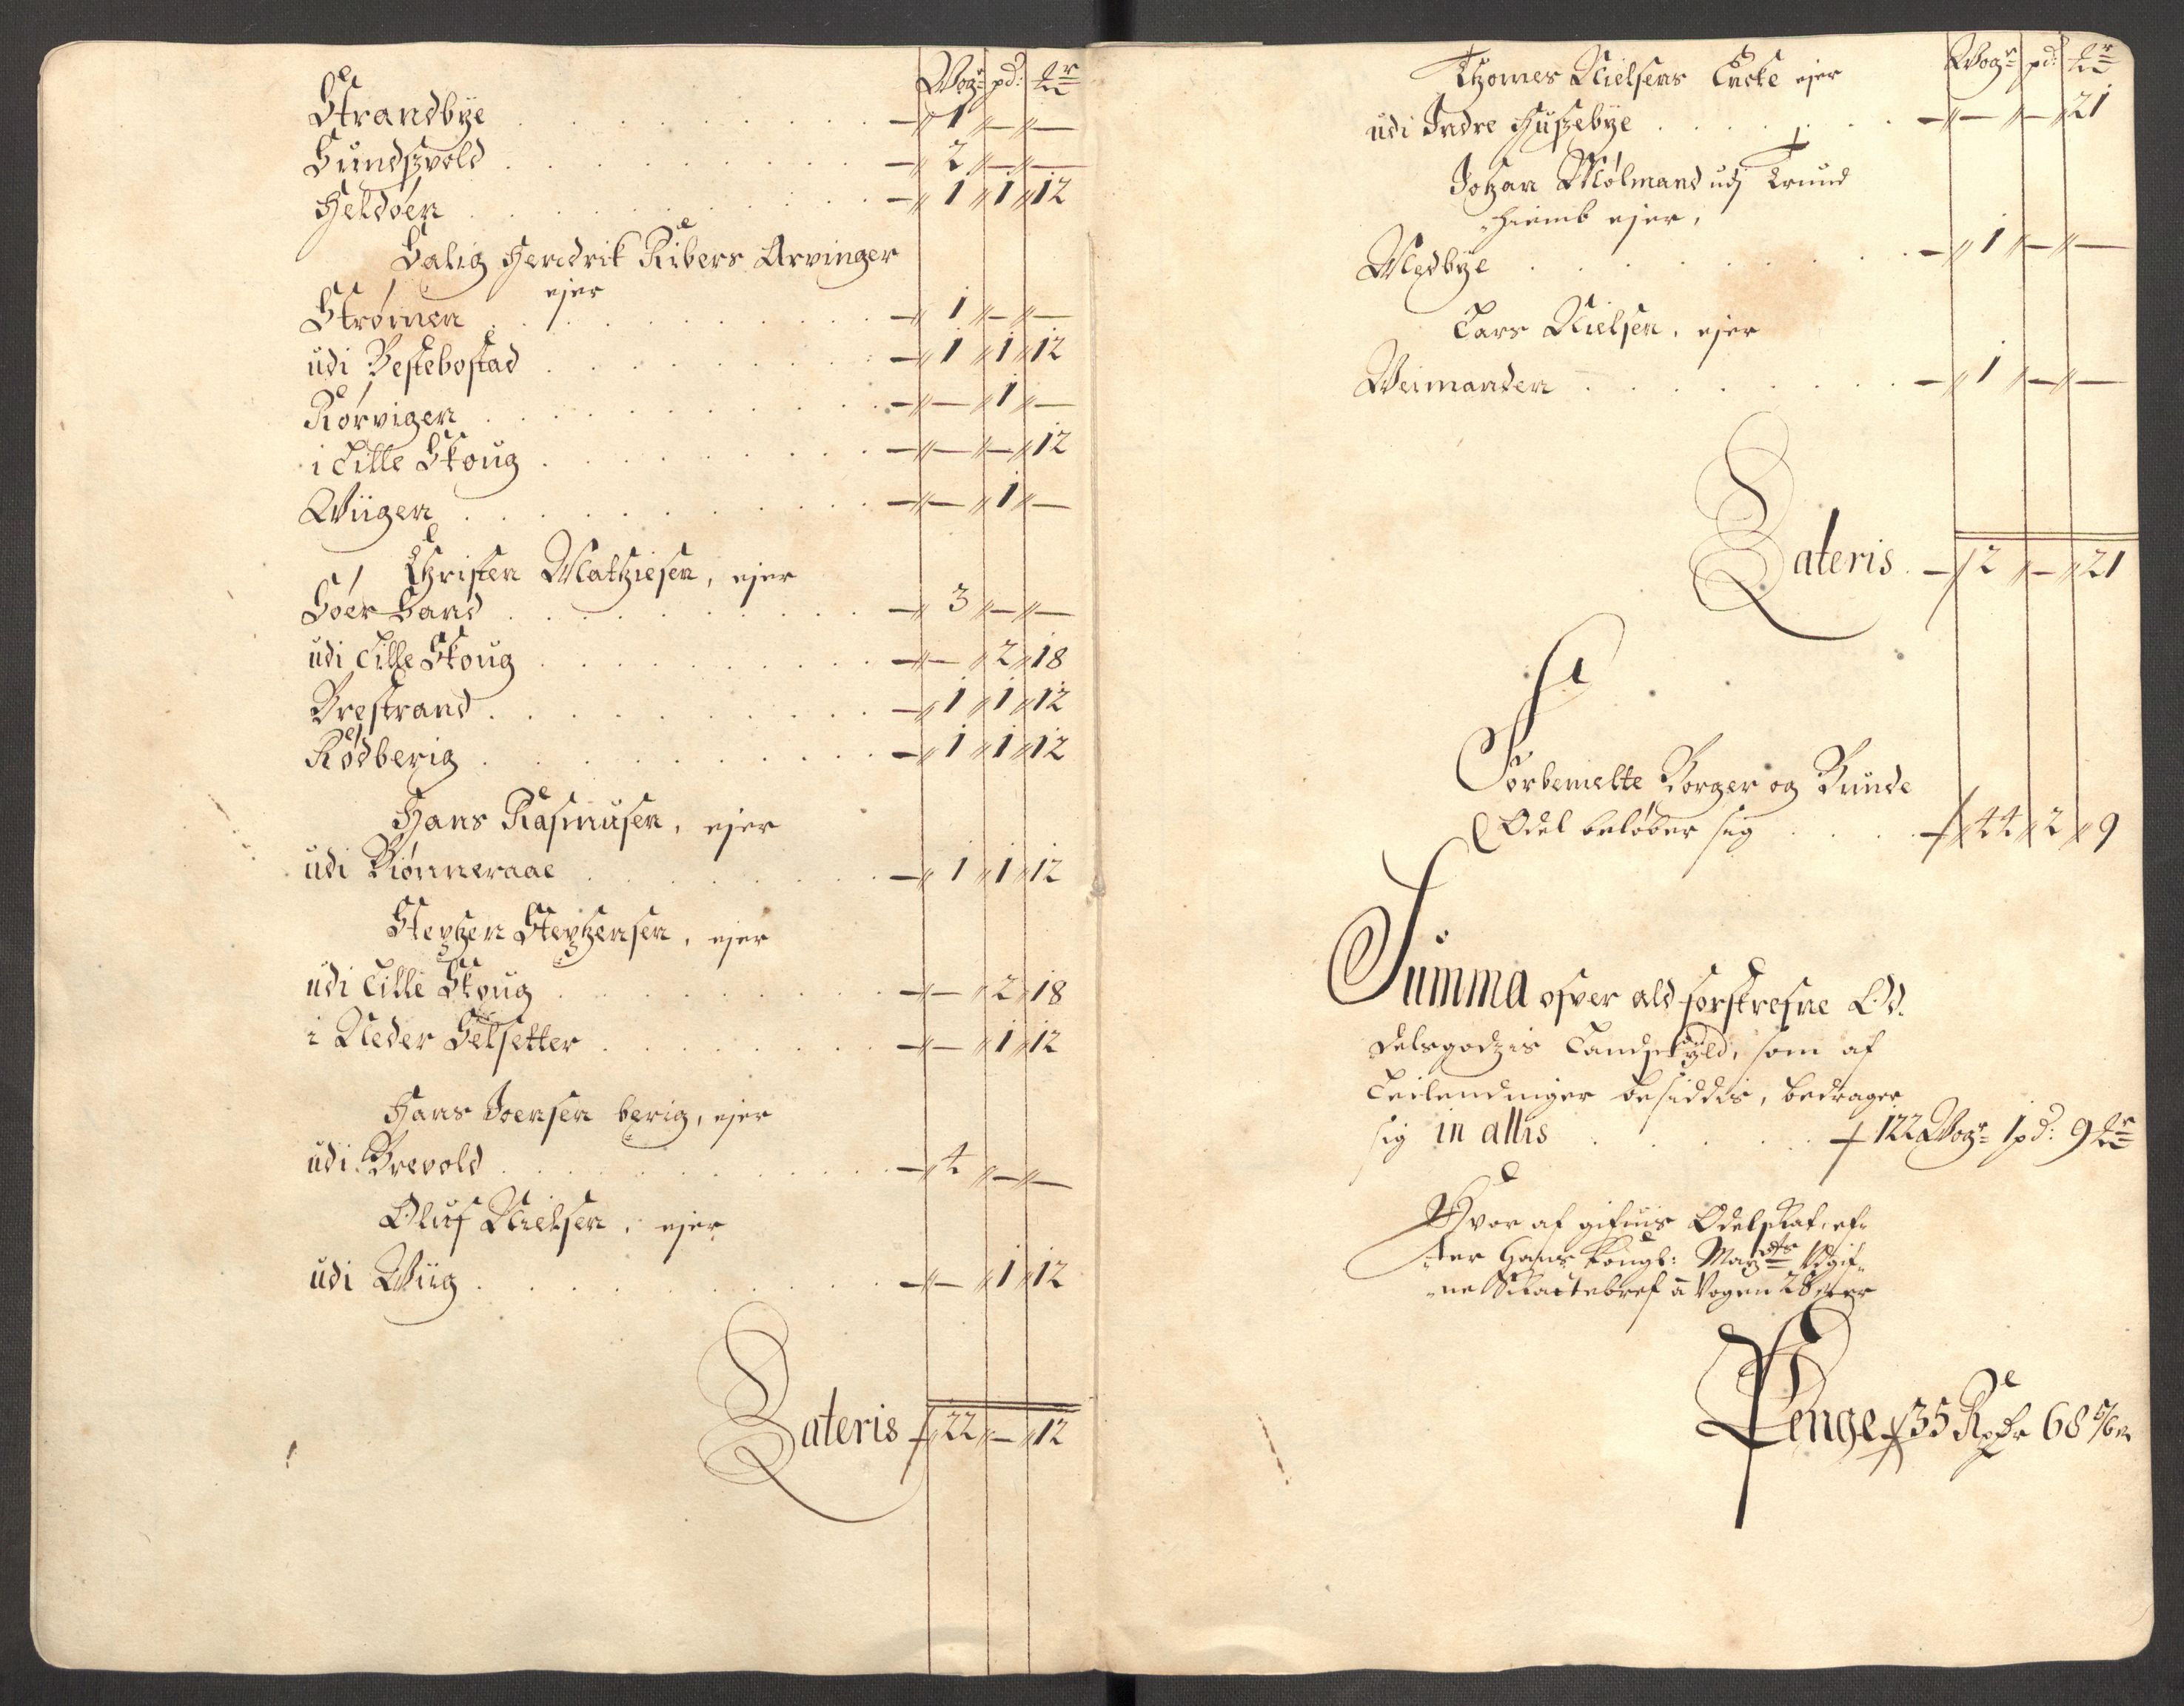 Wogr pd: ℔r
Strandbye . . . . . . . . . — 1 — —
Sundszvold . . . . . . . . . — 2 — —
Heldøen . . . . . . . . . — 1 1 12
Salig Hendrik Ribers Arvinger
ejer
Strømen . . . . . . . . . — 1 — —
udi Bestebostad . . . . . . . . — 1 1 12
Rørvigen . . . . . . . . . — — 1 —
i Lille Skoug . . . . . . . . — — — 12
Wiigen . . . . . . . . . — — 1 —
Christen Mathiesen, ejer
Søer Sand . . . . . . . . . — 3 — —
udi Lille Skoug . . . . . . . . — — 2 18
Brestrand . . . . . . . . . — 1 1 12
Rødberig . . . . . . . . . — 1 1 12
Hans Rasmusen, ejer
udi Biønneraae . . . . . . . — 1 1 12
Stephen Stephensen, ejer
udi Lille Skoug . . . . . . . . — — 2 18
i Neder Selsetter . . . . . . . — — 1 12
Hans Joensen berig, ejer
udi Brevold . . . . . . . . — 4 — —
Oluf Nielsen, ejer
udi Wiig . . . . . . . . — — 1 12
Lateris 22 — 12
Wogr pd: ℔r
Thomes Nielsens Encke ejer
udi Indre Huszebye . . . . . . — — — 21
Johan Mølmand udj Trund
hiemb ejer,
Medbye . . . . . . . . — 1 — —
Lars Nielsen, ejer
Weimanden . . . . . . . — 1 — —
Lateris. — 2 — 21
Forbemelte Borger og Bunde
Odel beløber sig . . . . 44 2 9
Summa ofver ald forskrefne Od.
delsgodzis Landskyld, som af
Leilendinger besiddis, bedrager
sig in allis . . . . . . 122 Wogr 1 pd: 9 ℔r
Hvor af gifuis Odelskat, ef-
ter Hans Kongl: Mayts Udgif-
ne Skattebref à Vogen 28 ser
Penge 35 Rdr 68 s